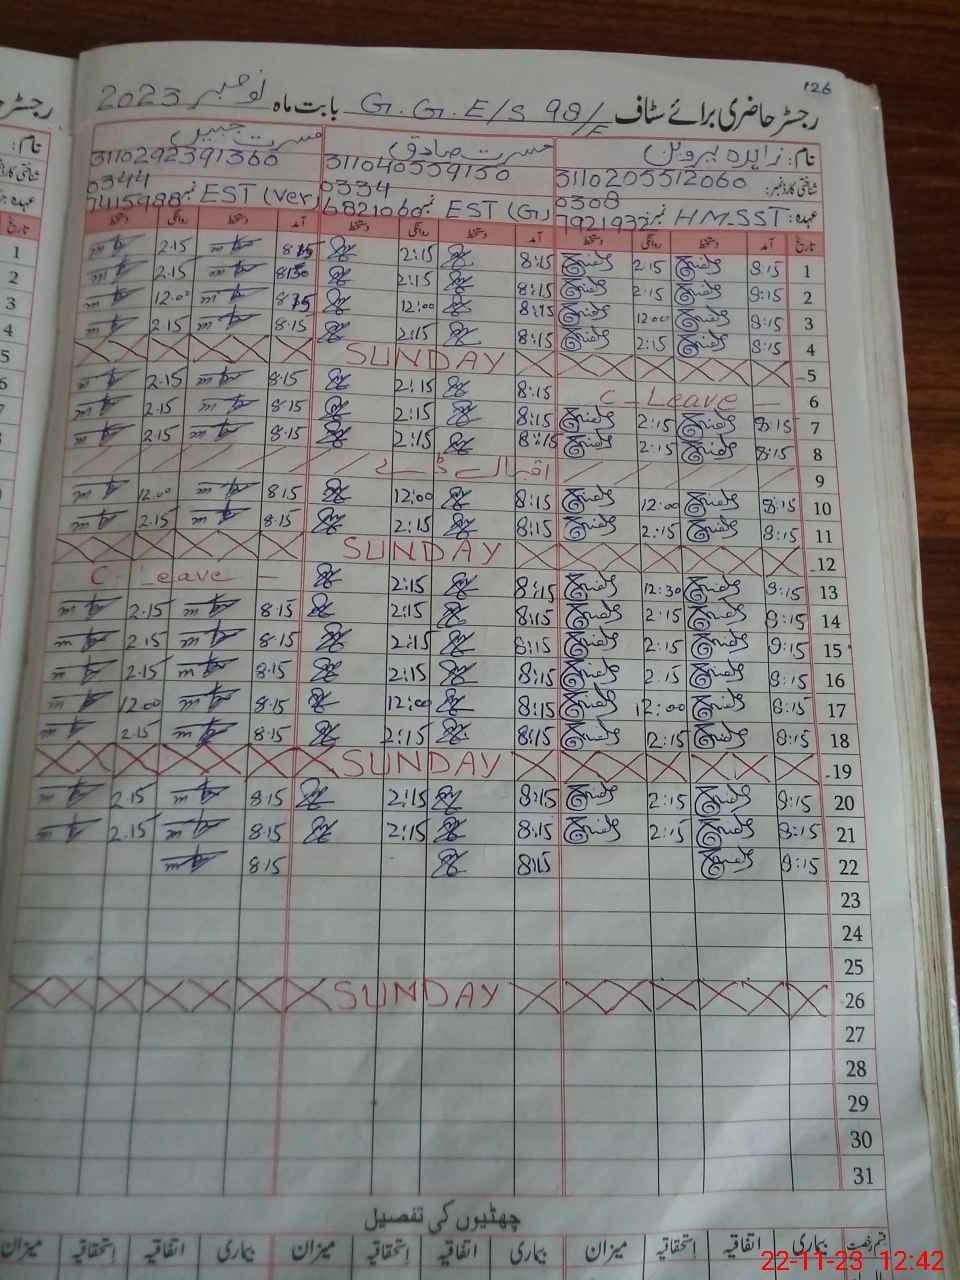 126
رجسٹر حاضری برائے سٹاف G.G.E/S 98/F بابت ماہ نومبر 2023
نام: زاہدہ پروین مسرت صادق مسرت جبیں
شناختی کارڈ نمبر: 3110205512060 311040559150 3110292391360
0308 0334 0344
عہدہ: HM.SST نمبر 7921932 EST (G) نمبر 6821060 EST (Ver) نمبر 7415988
تاریخ آمد دستخط روانگی دستخط آمد دستخط روانگی دستخط آمد دستخط روانگی دستخط
1 8:15 2:15 8:15 2:15 8:15 2.15
2 8:15 2:15 8:15 2:15 2.15
3 8:15 12:00 8:15 12:00 12.00
4 8:15 2:15 8:15 2:15 8.15 2.15
5 SUNDAY
6 C-Leave 8:15 2:15 8.15 2.15
7 8:15 2:15 8:15 2:15 8.15 2.15
8 8:15 2:15 8:15 2:15 8.15 2.15
9 اقبال ڈے
10 8:15 12:00 8:15 12:00 8.15 12.00
11 8:15 2:15 8:15 2:15 8.15 2.15
12 SUNDAY
13 8:15 12:30 8:15 2:15 C-Leave
14 8:15 2:15 8:15 2:15 8.15 2.15
15 8:15 2:15 8:15 2:15 8.15 2.15
16 8:15 2:15 8:15 2:15 8.15 2.15
17 8:15 12:00 8:15 12:00 8.15 12.00
18 8:15 2:15 8:15 2:15 8.15 2.15
19 SUNDAY
20 8:15 2:15 8:15 2:15 8.15 2.15
21 8:15 2:15 8:15 2:15 8.15 2.15
22 8:15 8:15 8.15
23
24
25
26 SUNDAY
27
28
29
30
31
چھٹیوں کی تفصیل
قسم رخصت بیماری اتفاقیہ استحقاقیہ میزان بیماری اتفاقیہ استحقاقیہ میزان بیماری اتفاقیہ استحقاقیہ میزان
22-11-23 12:42